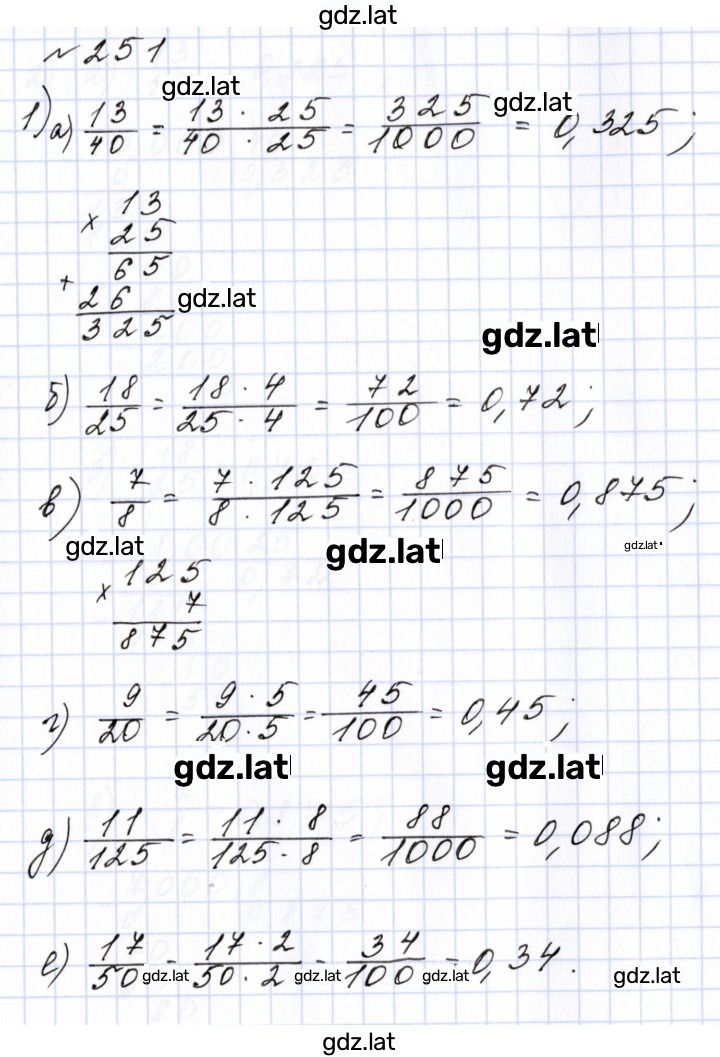 gdz.lat
№251
gdz.lat
1) а) 13/40 = 13 · 25/40 · 25 = 325/1000 = 0,325; gdz.lat
× 13
25
65
+
26 gdz.lat
325
gdz.lat
б) 18/25 = 18 · 4/25 · 4 = 72/100 = 0,72;
в) 7/8 = 7 · 125/8 · 125 = 875/1000 = 0,875;
gdz.lat gdz.lat gdz.lat
× 125
7
875
г) 9/20 = 9 · 5/20 · 5 = 45/100 = 0,45;
gdz.lat gdz.lat
д) 11/125 = 11 · 8/125 · 8 = 88/1000 = 0,088;
е) 17/50 = 17 · 2/50 · 2 = 34/100 = 0,34.
gdz.lat gdz.lat gdz.lat gdz.lat
gdz.lat